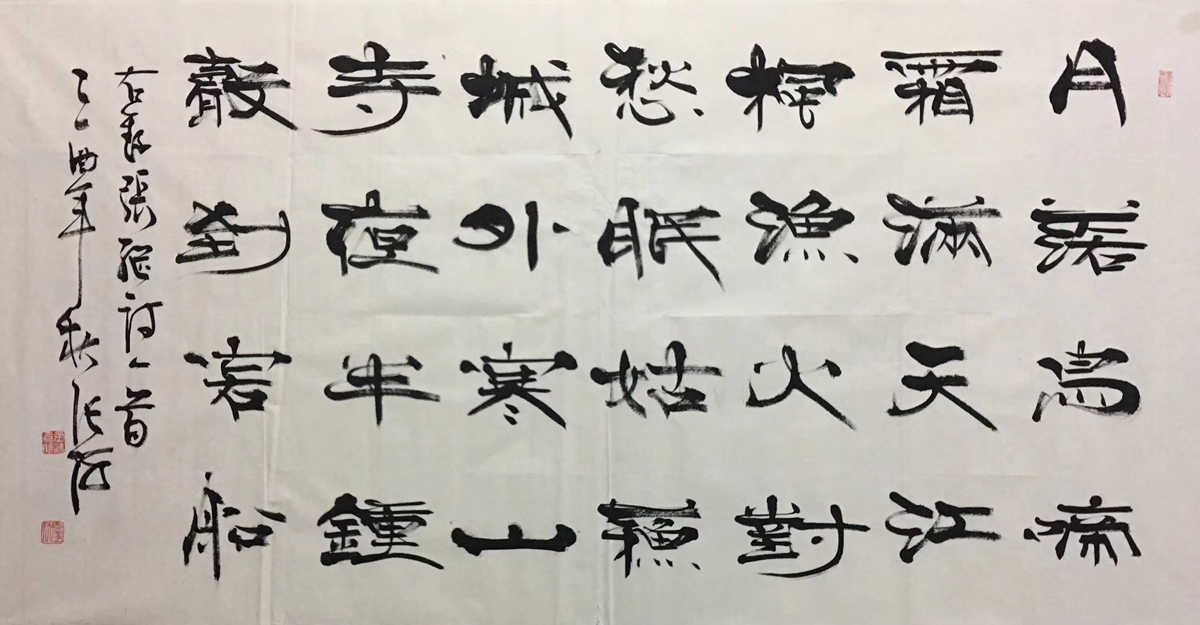 月落烏啼
霜滿天江
楓漁火對
愁眠姑蘇
城外寒山
寺夜半鍾
聲到客船
右錄張繼詩一首
丁酉年秋